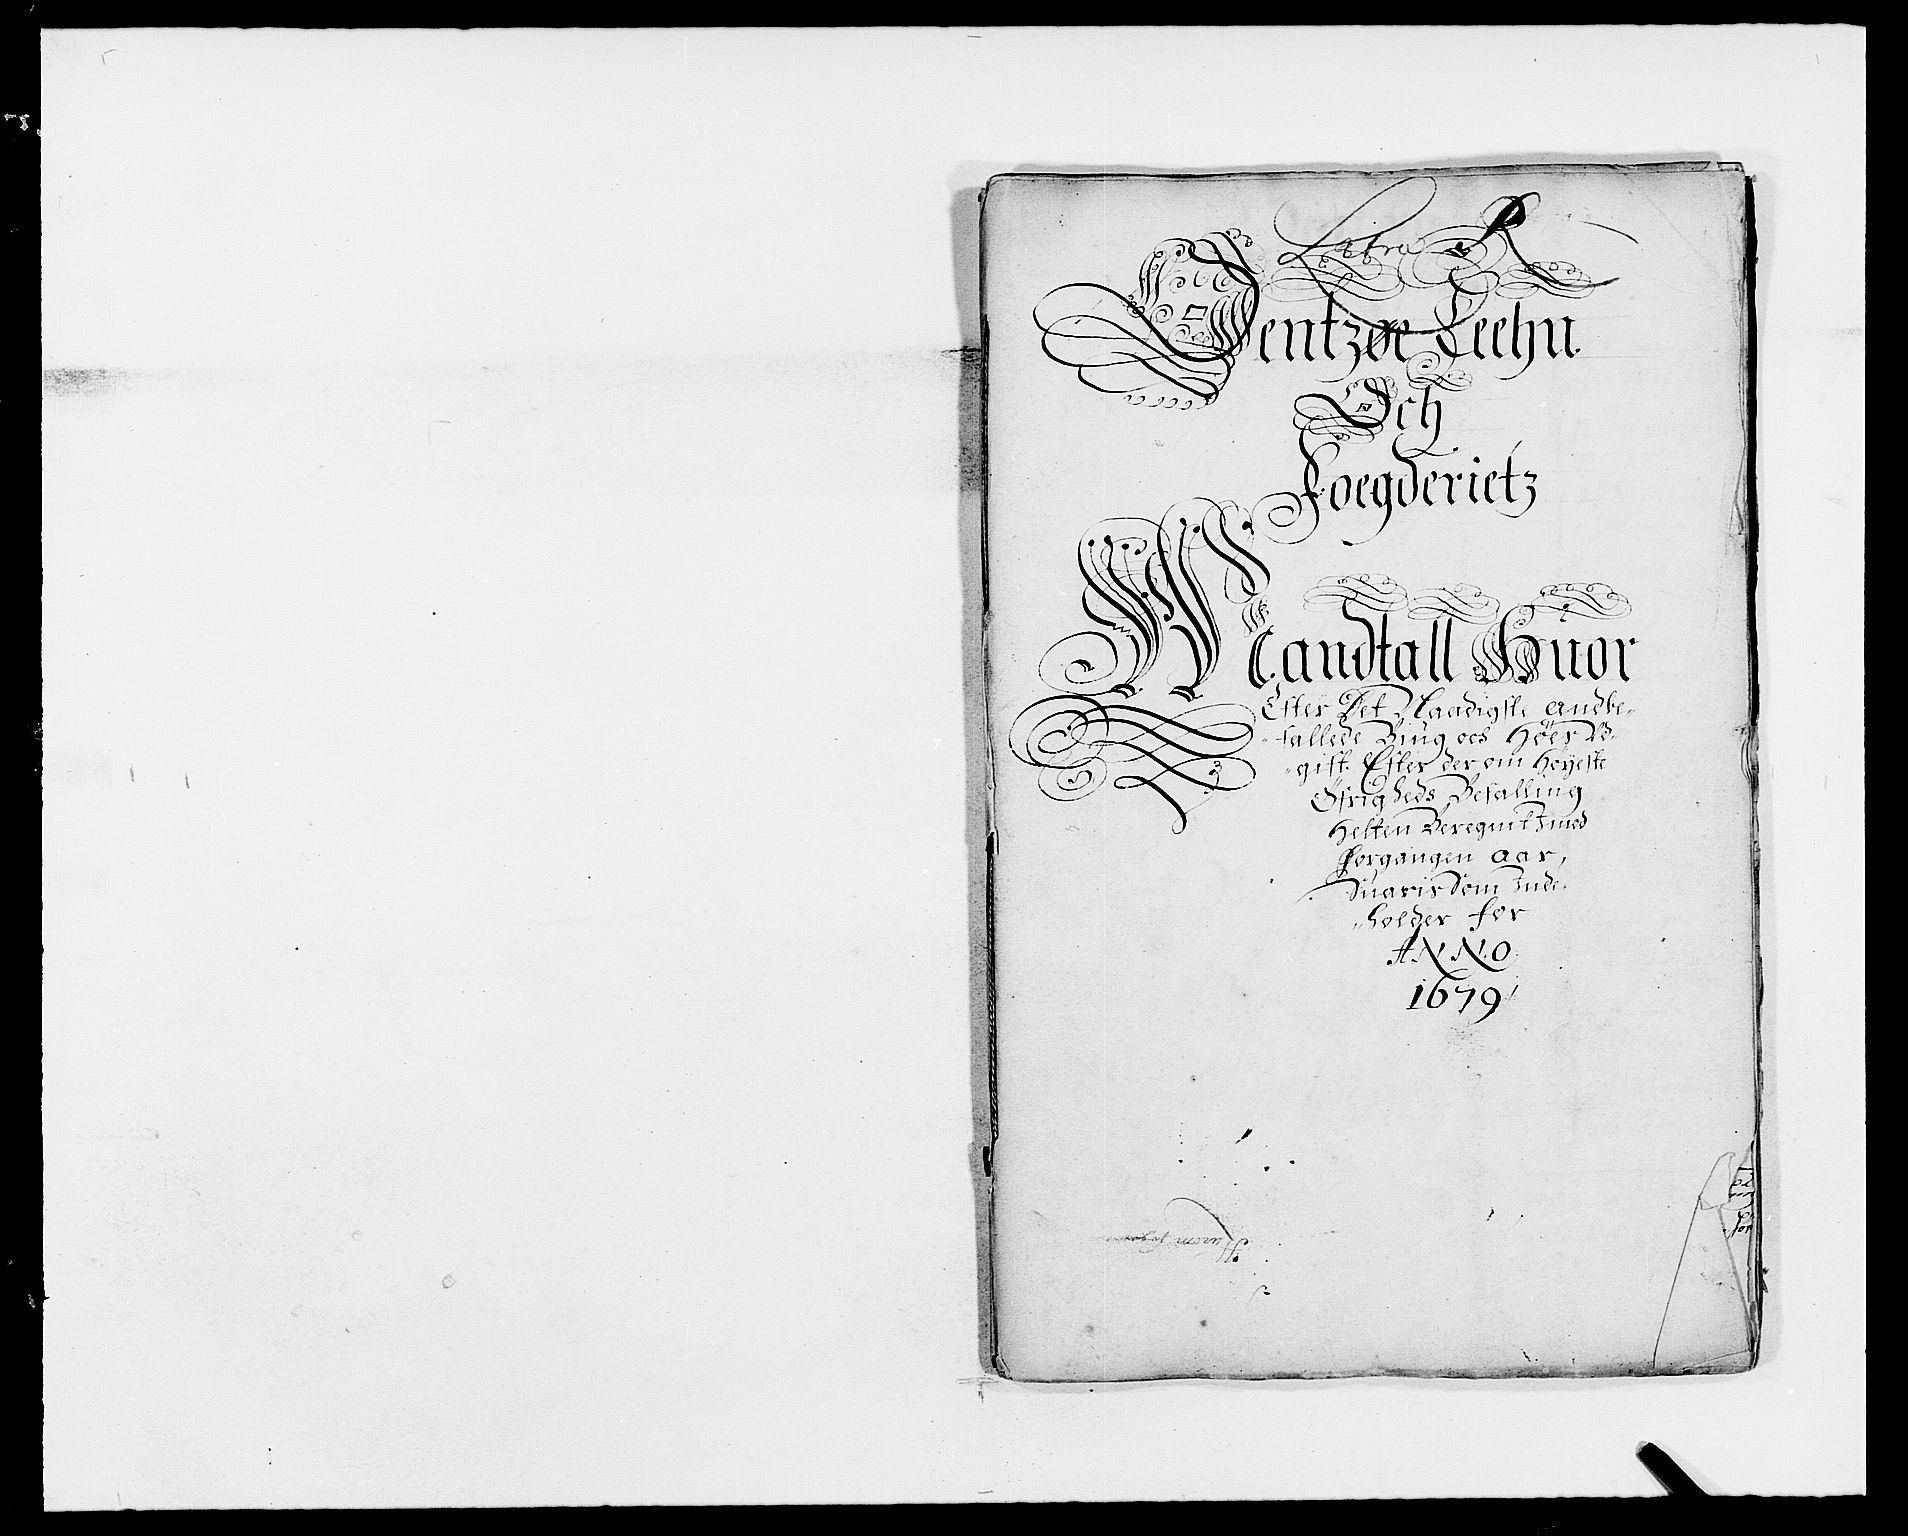 Litra R
Jentzøe Leehn
Och
Foegderietz
Mandtall Huor
Efter Det Naadigste Andbe-
-fallede Ving och Høes Ud-
-gift. Efter der om Høyeste
Öfrigheds Befalling
Helten Beregnit Imod
Forgangen Aar,
Suaris Som Inde-
-holder for
ANNO
1679